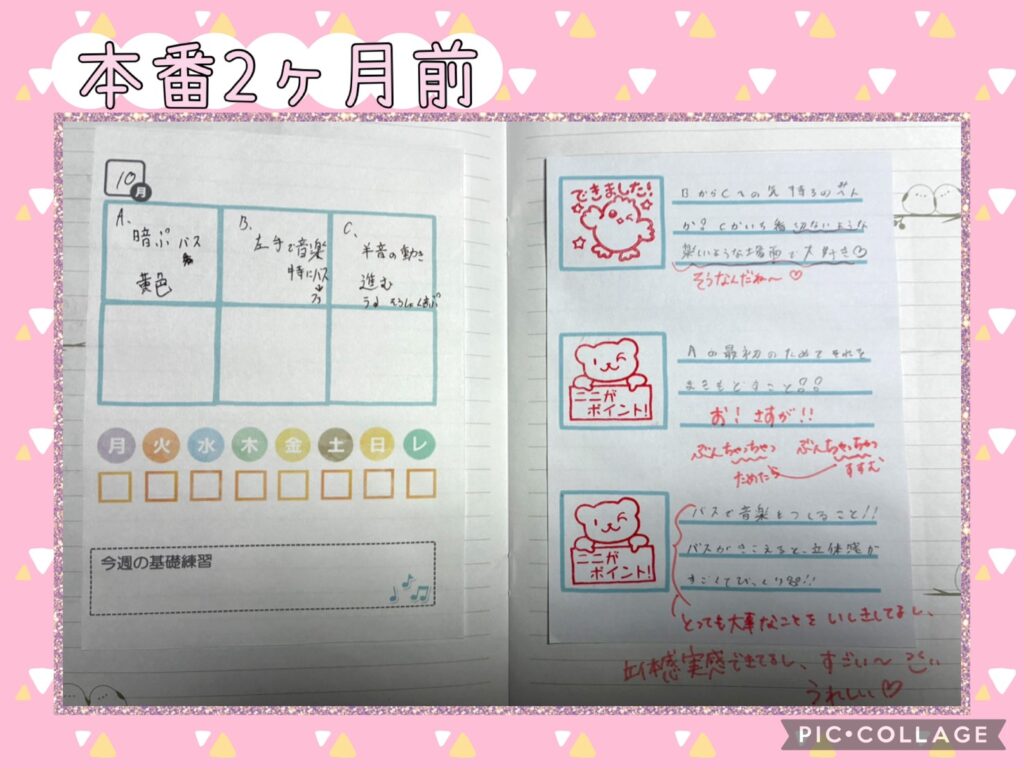 本番2ヶ月前
10月
A、
暗ぷ バス
黄色
B、
左手で音楽
特にバス
C、
半音の動き
進む
月 火 水 木 金 土 日 レ
今週の基礎練習
できました!
BからCへの気持ちの
切ないような
楽しいような場面で大好き♡
そうなんだね〜♡
ここが
ポイント!
Aの最初のためてそれを
まきもどすこと!!
お! さすが!!
ぶんちゃっちゃっ ぶんちゃっちゃっ
ためたら すすむ
ここが
ポイント!
バスで音楽をつくること!!
バスがきこえると、立体感が
すごくてびっくり!!
とっても大事なことを いしきしてるし、
立体感実感できてるし、すごい〜
うれしい♡
PIC•COLLAGE